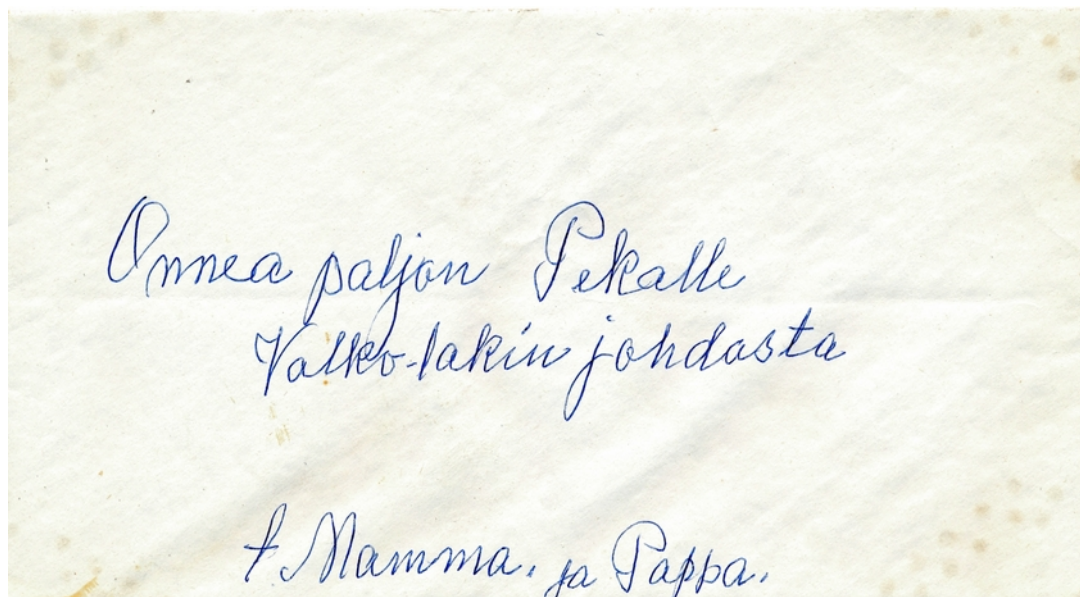 Onnea paljon Pekalle
Valko-lakin johdosta
t Mamma. ja Pappa.